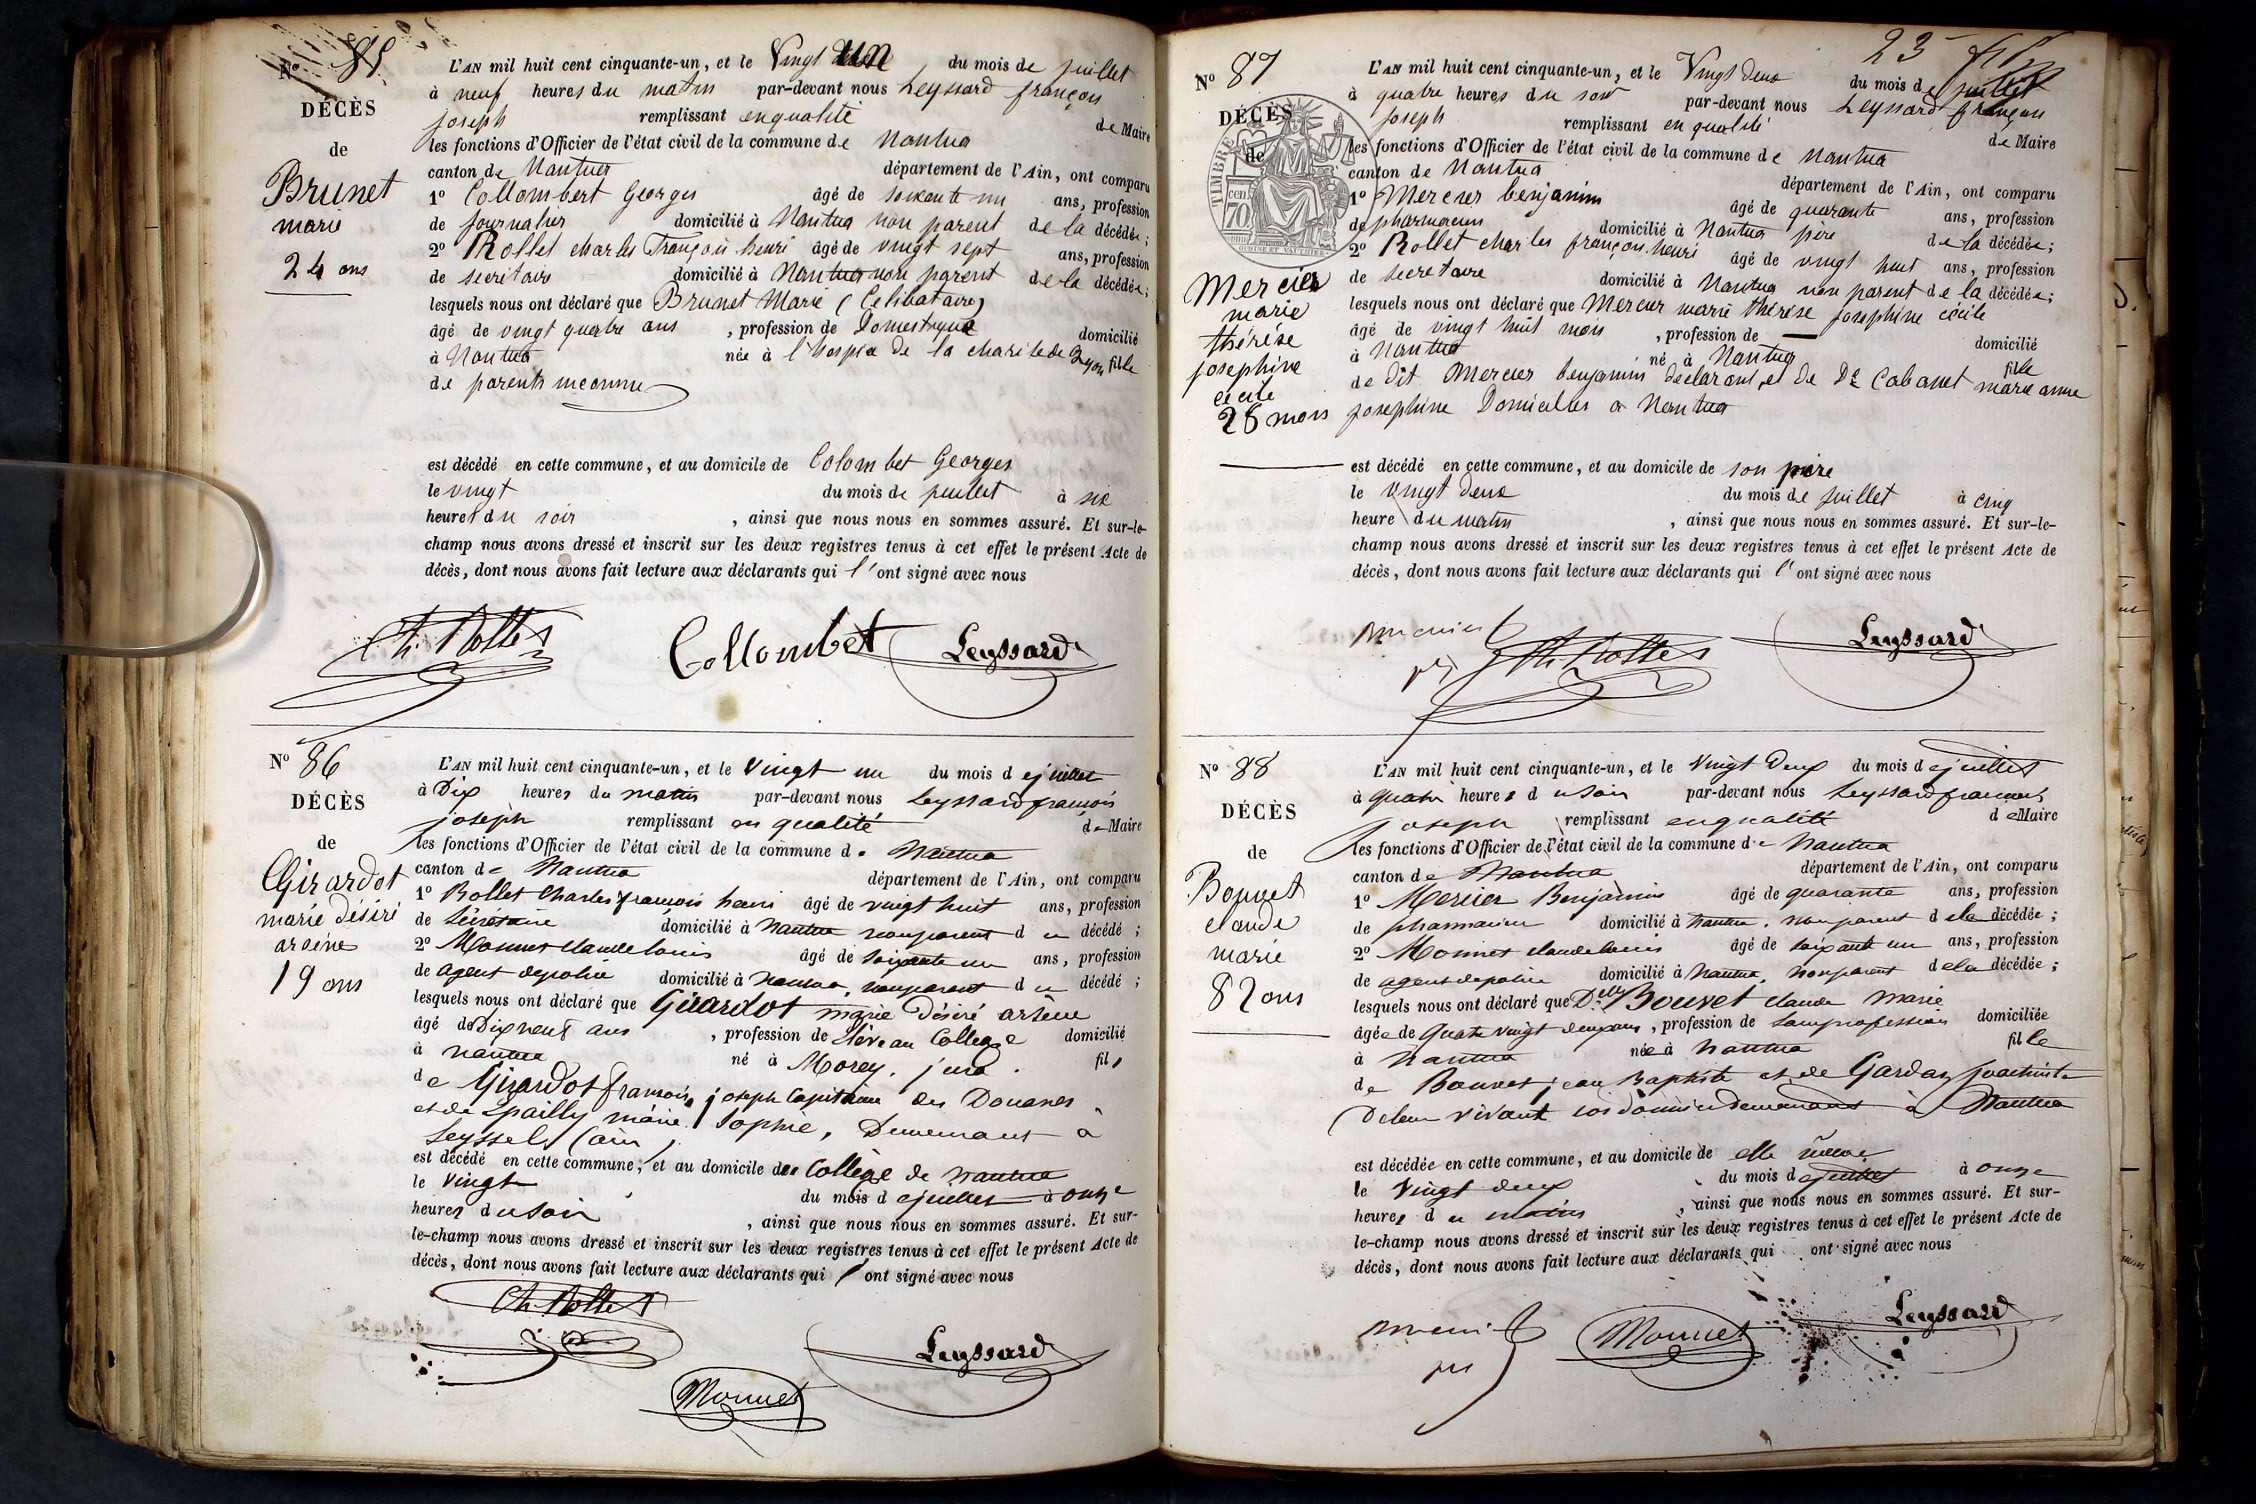 Nº 85
DÉCÈS
de
Brunet
marie
24 ans
L'AN mil huit cent cinquante-un, et le Vingt un du mois de juillet
à neuf heures du matin par-devant nous Leyssard françois
joseph remplissant en qualité de Maire
les fonctions d'Officier de l'état civil de la commune de Nantua
canton de Nantua département de l'Ain, ont comparu
1º Collombert Georges âgé de soixante un ans, profession
de journalier domicilié à Nantua non parent de la décédée;
2º Rollet charles François henri âgé de vingt sept ans, profession
de secrétaire domicilié à Nantua non parent de la décédée;
lesquels nous ont déclaré que Brunet Marie (Celibataire)
âgé de vingt quatre ans, profession de Domestique domicilié
à Nantua née à l'hospice de la charité de Lyon fille
de parents inconnus
est décédé en cette commune, et au domicile de Colombet Georges
le vingt du mois de juillet à six
heures du soir, ainsi que nous nous en sommes assuré. Et sur-le-
champ nous avons dressé et inscrit sur les deux registres tenus à cet effet le présent Acte de
décès, dont nous avons fait lecture aux déclarants qui l'ont signé avec nous
Ch. Rollet Collombet Leyssard
Nº 86
DÉCÈS
de
Girardot
marie Désiré
arsène
19 ans
L'AN mil huit cent cinquante-un, et le vingt un du mois de juillet
à Dix heures du matin par-devant nous Leyssard françois
joseph remplissant en qualité de Maire
les fonctions d'Officier de l'état civil de la commune de Nantua
canton de Nantua département de l'Ain, ont comparu
1º Rollet Charles françois henri âgé de vingt huit ans, profession
de Secrétaire domicilié à Nantua non parent du décédé;
2º Monnet claude louis âgé de soixante un ans, profession
de agent de police domicilié à nantua, non parent du décédé;
lesquels nous ont déclaré que Girardot marie Désiré arsène
âgé de Dix neuf ans, profession de élève au Collège domicilié
à nantua né à Morey, jura. fils
de Girardot françois, joseph Capitaine des Douanes
et de Epailly marie Sophie, Demeurant à
Seyssel (ain)
est décédé en cette commune, et au domicile du Collège de nantua
le vingt du mois de juillet à onze
heures du soir, ainsi que nous nous en sommes assuré. Et sur-
le-champ nous avons dressé et inscrit sur les deux registres tenus à cet effet le présent Acte de
décès, dont nous avons fait lecture aux déclarants qui l'ont signé avec nous
Ch. Rollet
Leyssard
Monnet
23
Nº 87
DÉCÈS
de
TIMBRE
70 cen
Mercier
marie
thérése
josephine
cécile
28 mois
L'AN mil huit cent cinquante-un, et le Vingt deux du mois de juillet
à quatre heures du soir par-devant nous Leyssard françois
joseph remplissant en qualité de Maire
les fonctions d'Officier de l'état civil de la commune de Nantua
canton de Nantua département de l'Ain, ont comparu
1º Mercier benjamin âgé de quarante ans, profession
de pharmacien domicilié à Nantua père de la décédée;
2º Rollet charles françois henri âgé de vingt huit ans, profession
de secretaire domicilié à Nantua non parent de la décédée;
lesquels nous ont déclaré que Mercier marie thérése josephine cécile
âgé de vingt huit mois, profession de — domicilié
à Nantua né à Nantua fille
de dit Mercier benjamin declarant, et de De Cabanet marie anne
josephine Domiciliés a Nantua
est décédé en cette commune, et au domicile de son père
le vingt deux du mois de juillet à cinq
heure du matin, ainsi que nous nous en sommes assuré. Et sur-le-
champ nous avons dressé et inscrit sur les deux registres tenus à cet effet le présent Acte de
décès, dont nous avons fait lecture aux déclarants qui l'ont signé avec nous
Mercier Ch. Rollet Leyssard
Nº 88
DÉCÈS
de
Bouvet
claude
marie
82 ans
L'AN mil huit cent cinquante-un, et le Vingt Deux du mois de juillet
à quatre heures du soir par-devant nous Leyssard françois
joseph remplissant en qualité de Maire
les fonctions d'Officier de l'état civil de la commune de nantua
canton de Nantua département de l'Ain, ont comparu
1º Mercier Benjamin âgé de quarante ans, profession
de pharmacien domicilié à nantua, non parent de la décédée;
2º Monnet claude louis âgé de soixante un ans, profession
de agent de police domicilié à Nantua, non parent de la décédée;
lesquels nous ont déclaré que Delle Bouvet claude marie
âgée de quatre vingt deux ans, profession de sans profession domiciliée
à nantua née à nantua fille
de Bouvet jean Baptiste et de Garday joachiste
De leur vivant demeurant à Nantua
est décédée en cette commune, et au domicile de elle même
le Vingt deux du mois de juillet à onze
heures du matin, ainsi que nous nous en sommes assuré. Et sur-
le-champ nous avons dressé et inscrit sur les deux registres tenus à cet effet le présent Acte de
décès, dont nous avons fait lecture aux déclarants qui ont signé avec nous
Mercier Monnet Leyssard